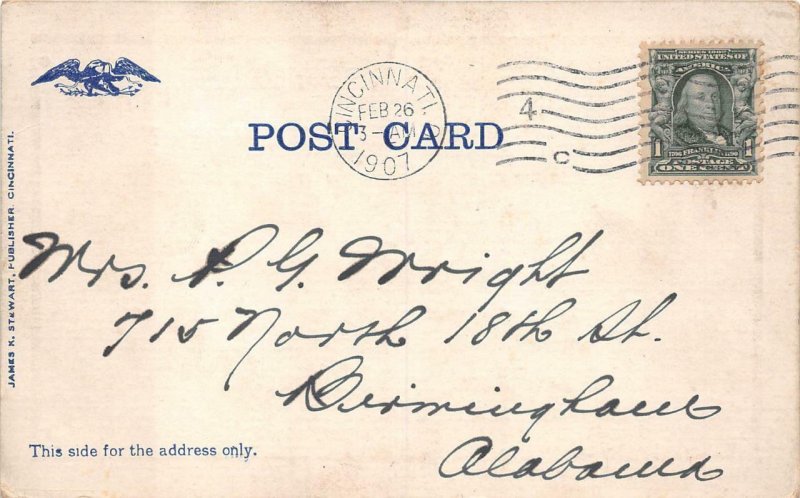 CINCINNATI, O.
FEB 26
3-AM
1907
4
C
SERIES 1902
UNITED STATES OF
AMERICA
FRANKLIN
1 POSTAGE 1
ONE CENT
POST CARD
Mrs. P. G. Wright
715 North 18th St.
Birmingham
Alabama
This side for the address only.
JAMES K. STEWART, PUBLISHER, CINCINNATI.